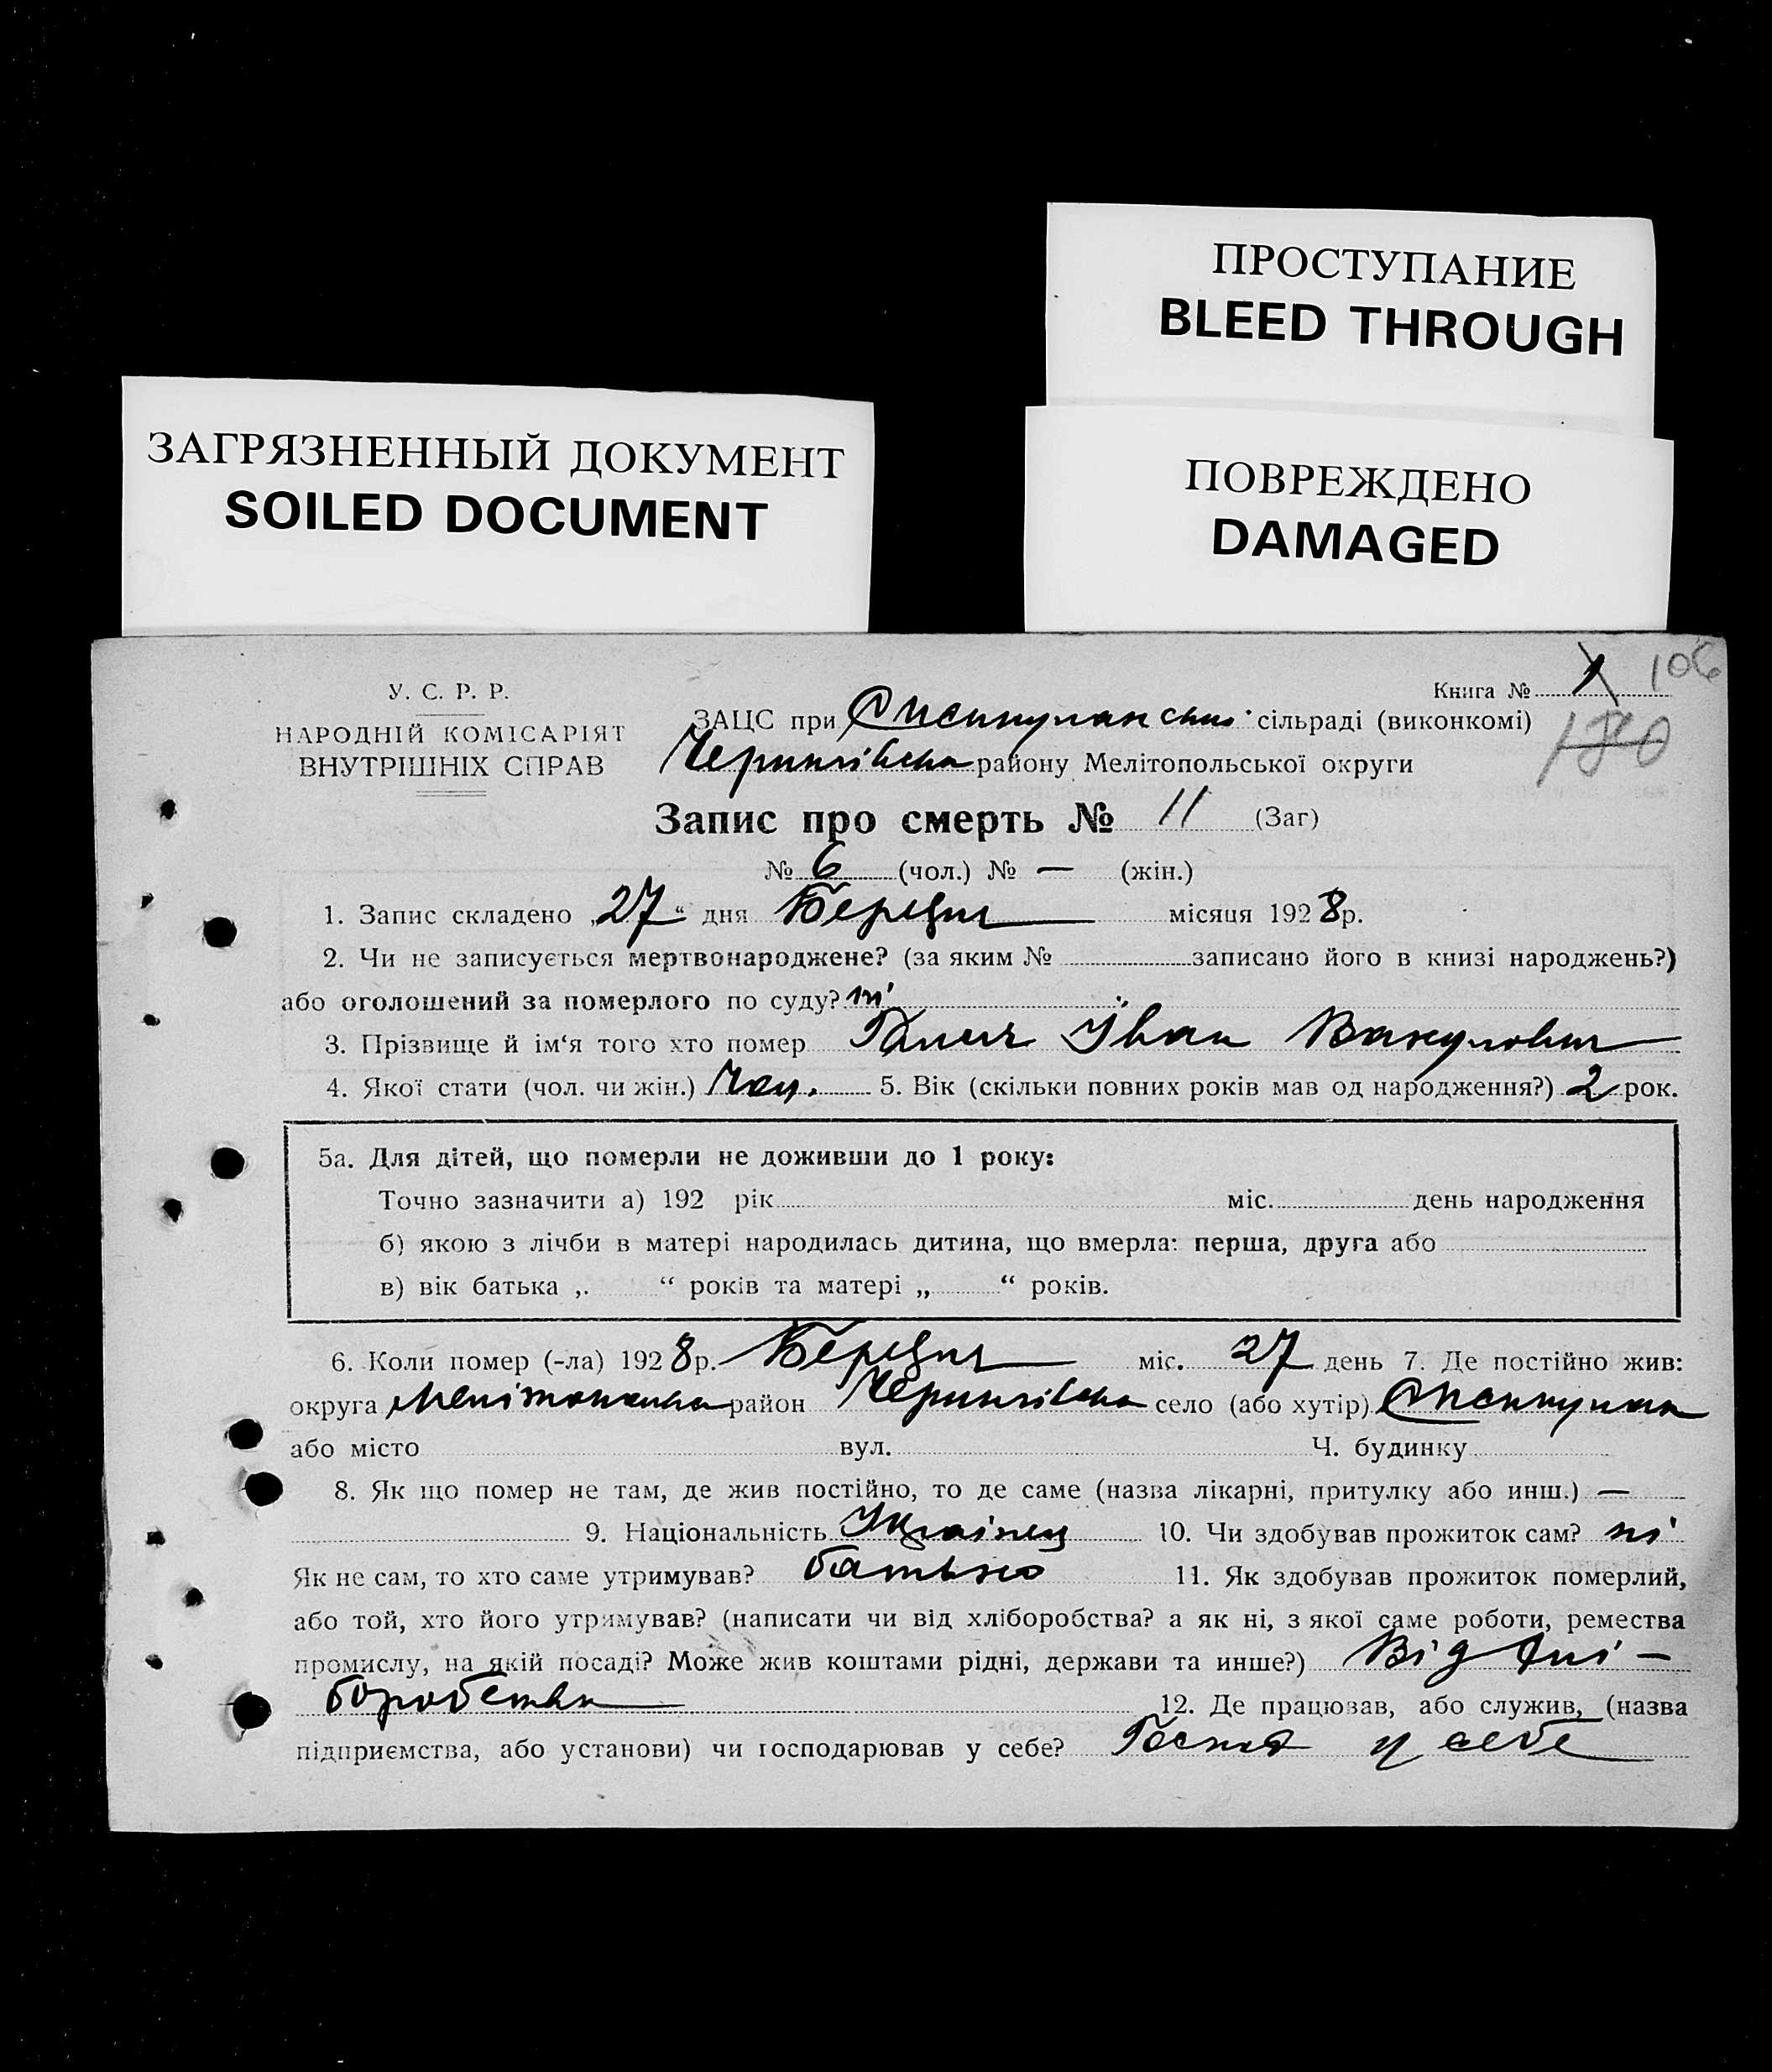 ПРОСТУПАНИЕ
BLEED THROUGH
ЗАГРЯЗНЕННЫЙ ДОКУМЕНТ
SOILED DOCUMENT
ПОВРЕЖДЕНО
DAMAGED
106
У. С. Р. Р.
НАРОДНІЙ КОМІСАРІЯТ
ВНУТРІШНІХ СПРАВ
Книга № 1
ЗАЦС при сільраді (виконкомі)
району Мелітопольської округи
Запис про смерть № 11 (Заг)
№ 6 (чол.) № — (жін.)
1. Запис складено „27“ дня Березня місяця 1928р.
2. Чи не записується мертвонароджене? (за яким № записано його в книзі народжень?)
або оголошений за померлого по суду? ні
3. Прізвище й ім‘я того хто помер Іван Вакулович
4. Якої стати (чол. чи жін.) Чол. 5. Вік (скільки повних років мав од народження?) 2 рок.
5а. Для дітей, що померли не доживши до 1 року:
Точно зазначити а) 192 рік міс. день народження
б) якою з лічби в матері народилась дитина, що вмерла: перша, друга або
в) вік батька „ “ років та матері „ “ років.
6. Коли помер (-ла) 1928р. Березня міс. 27 день 7. Де постійно жив:
округа Мелітопольська район Чернигівська село (або хутір)
або місто вул. Ч. будинку
8. Як що помер не там, де жив постійно, то де саме (назва лікарні, притулку або инш.) —
9. Національність Українец 10. Чи здобував прожиток сам? ні
Як не сам, то хто саме утримував? батько 11. Як здобував прожиток померлий,
або той, хто його утримував? (написати чи від хліборобства? а як ні, з якої саме роботи, ремества
промислу, на якій посаді? Може жив коштами рідні, держави та инше?) Від хлі-
боробства 12. Де працював, або служив, (назва
підприємства, або установи) чи господарював у себе? у себе